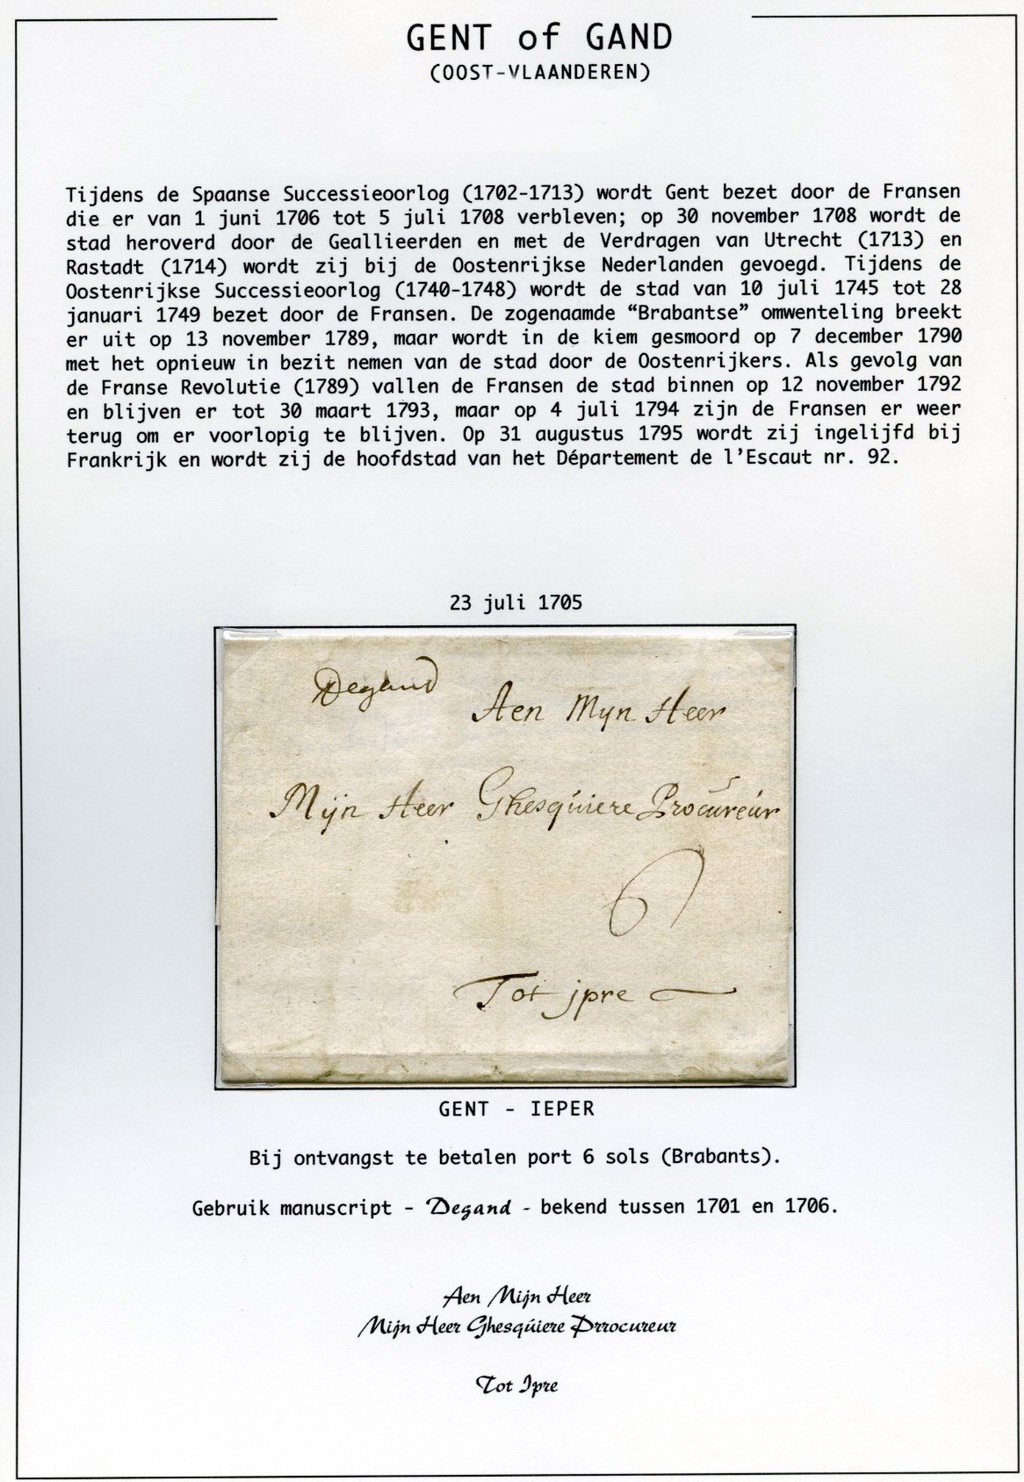 GENT of GAND
(OOST-VLAANDEREN)
Tijdens de Spaanse Successieoorlog (1702-1713) wordt Gent bezet door de Fransen
die er van 1 juni 1706 tot 5 juli 1708 verbleven; op 30 november 1708 wordt de
stad heroverd door de Geallieerden en met de Verdragen van Utrecht (1713) en
Rastadt (1714) wordt zij bij de Oostenrijkse Nederlanden gevoegd. Tijdens de
Oostenrijkse Successieoorlog (1740-1748) wordt de stad van 10 juli 1745 tot 28
januari 1749 bezet door de Fransen. De zogenaamde “Brabantse” omwenteling breekt
er uit op 13 november 1789, maar wordt in de kiem gesmoord op 7 december 1790
met het opnieuw in bezit nemen van de stad door de Oostenrijkers. Als gevolg van
de Franse Revolutie (1789) vallen de Fransen de stad binnen op 12 november 1792
en blijven er tot 30 maart 1793, maar op 4 juli 1794 zijn de Fransen er weer
terug om er voorlopig te blijven. Op 31 augustus 1795 wordt zij ingelijfd bij
Frankrijk en wordt zij de hoofdstad van het Département de l'Escaut nr. 92.
23 juli 1705
Degand
Aen Mijn Heer
Mijn Heer Ghesqúiere Procúreúr
6
Tot jpre
GENT - IEPER
Bij ontvangst te betalen port 6 sols (Brabants).
Gebruik manuscript - Degand - bekend tussen 1701 en 1706.
Aen Mijn Heer
Mijn Heer Ghesqúiere Prrocureur
Tot Ipre